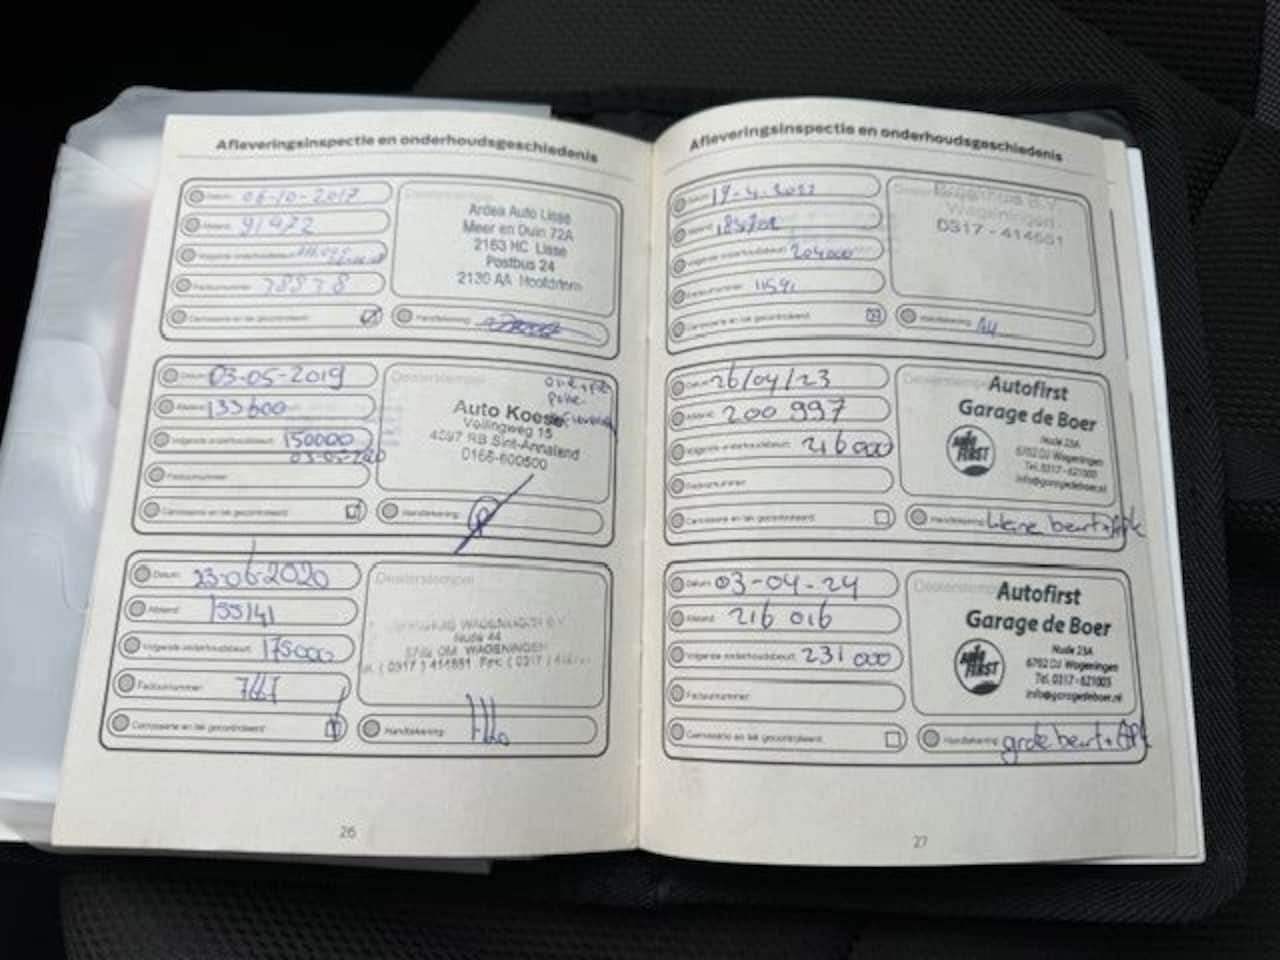 Afleveringsinspectie en onderhoudsgeschiedenis
Datum: 06-10-2017
Afstand: 91472
Volgende onderhoudsbeurt:
Factuurnummer: 78878
Carrosserie en lak gecontroleerd:
Handtekening:
Dealerstempel
Ardea Auto Lisse
Meer en Duin 72A
2163 HC Lisse
Postbus 24
2130 AA Hoofddorp
Datum: 03-05-2019
Afstand: 133600
Volgende onderhoudsbeurt: 150000
03-05-2020
Factuurnummer:
Carrosserie en lak gecontroleerd:
Handtekening:
Dealerstempel
Auto Koese
Vollingweg 15
4697 RB Sint-Annaland
0166-600500
Datum: 23-06-2020
Afstand: 155141
Volgende onderhoudsbeurt: 175000
Factuurnummer:
Carrosserie en lak gecontroleerd:
Handtekening:
Dealerstempel
WAGENINGEN B.V.
Nude 44
WAGENINGEN
26
Afleveringsinspectie en onderhoudsgeschiedenis
Datum: 19-4-2022
Afstand:
Volgende onderhoudsbeurt: 204000
Factuurnummer:
Carrosserie en lak gecontroleerd:
Handtekening:
Wageningen
0317 - 414651
Datum: 26/04/23
Afstand: 200 997
Volgende onderhoudsbeurt: 216000
Factuurnummer:
Carrosserie en lak gecontroleerd:
Handtekening: kleine beurt+Apk
Dealerstempel
Autofirst
Garage de Boer
AUTO FIRST
Nude 23A
6702 DJ Wageningen
Tel. 0317-621003
info@garagedeboer.nl
Datum: 03-04-24
Afstand: 216 016
Volgende onderhoudsbeurt: 231 000
Factuurnummer:
Carrosserie en lak gecontroleerd:
Handtekening: grote beurt+APK
Dealerstempel
Autofirst
Garage de Boer
AUTO FIRST
Nude 23A
6702 DJ Wageningen
Tel. 0317-621003
info@garagedeboer.nl
27